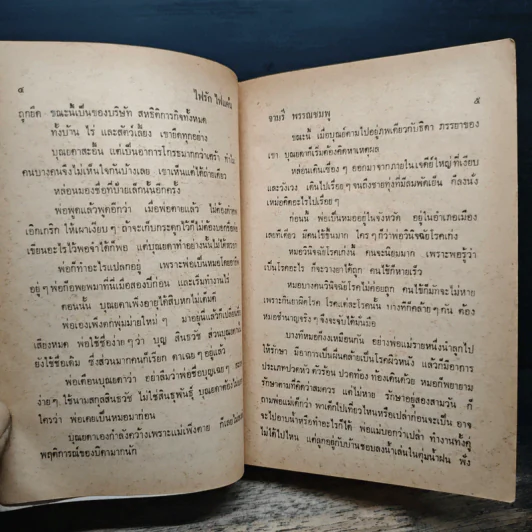 ๔
ไฟรัก ไฟแค้น
ถูกยึด ขณะนี้เป็นของบริษัท สหธิดิการกิจทั้งหมด
ทั้งบ้าน ไร่ และสัตว์เลี้ยง เขายึดทุกอย่าง
บุณยดาสะอื้น แต่เป็นอาการโกรธมากกว่าเศร้า ทำไม
คนบางคนจึงไม่เห็นใจกันบ้างเลย เขาเห็นแต่ได้ถ่ายเดียว
หล่อนมองชื่อที่ป้ายเล็กนั้นอีกครั้ง
พ่อพูดแล้วพูดอีกว่า เมื่อพ่อตายแล้ว ไม่ต้องทำศพ
เอิกเกริก ให้เผาเงียบ ๆ ถ้าจะเก็บกระดูกไว้ก็ไม่ต้องบอก
เขียนอะไรไว้พอจำได้ก็พอ แต่บุณยดาทำอย่างนั้นไม่ได้
พ่อก็ทำอะไรแปลกอยู่ เพราะพ่อเป็นหมอโดยอาชีพ
อยู่ ๆ พ่อก็อพยพมาที่นี่เมื่อสองปีก่อน และเริ่มทำงานไร่
ตอนนั้น บุณยดาเพิ่งอายุได้สิบหกไม่เต็มดี
พ่อเองเพิ่งตกพุ่มม่ายใหม่ ๆ มาอยู่นี่แล้วก็เปลี่ยนชื่อ
เสียงหมด พ่อใช้ชื่อง่าย ๆ ว่า บุญ สินธวัช ส่วนบุณยดา
ยังใช้ชื่อเดิม ซึ่งส่วนมากคนก็เรียก ดาเฉย ๆ อยู่แล้ว
พ่อเตือนบุณยดาว่า อย่าลืมว่าพ่อชื่อบุญเฉย ๆ
ง่าย ๆ ใช้นามสกุลสินธวัช ไม่ใช่สินธุพันธุ์ บุณยดาต้องไม่บอก
ใครว่า พ่อเคยเป็นหมอมาก่อน
บุณยดาเองกำลังคว้างเพราะแม่เพิ่งตาย ก็เลยไม่สนใจ
พฤติการณ์ของบิดามากนัก
จามรี พรรณชมพู
๕
ขณะนี้ เมื่อบุณย์ตามไปอยู่ภพเดียวกับธิดา ภรรยาของ
เขา บุณยดาก็เริ่มต้องคิดหาเหตุผล
หล่อนเดินเชื่อง ๆ ออกมาจากภายในเจดีย์ใหญ่ที่เงียบ
และวังเวง เดินไปเรื่อย ๆ จนถึงชายทุ่งที่มีลมพัดเย็น ก็ลงนั่ง
เหม่อคิดอะไรไปเรื่อย ๆ
ก่อนนี้ พ่อเป็นหมออยู่ในจังหวัด อยู่ในอำเภอเมือง
เลยทีเดียว มีคนไข้ขึ้นมาก ใคร ๆ ก็ว่าพ่อวินิจฉัยโรคเก่ง
หมอวินิจฉัยโรคเก่งนี้ คนจะนิยมมาก เพราะพอรู้ว่า
เป็นโรคอะไร ก็จะวางยาได้ถูก คนไข้ก็หายเร็ว
หมอบางคนวินิจฉัยโรคไม่ค่อยถูก คนไข้ก็มักจะไม่หาย
เพราะกินยาผิดโรค โรคแต่ละโรคนั้น บางทีก็คล้าย ๆ กัน ต้อง
หมอชำนาญจริง ๆ จึงจะจับได้มั่นมือ
บางทีหมอก็งงเหมือนกัน อย่างพ่อแม่รายหนึ่งนำลูกไป
ให้รักษา มีอาการเป็นผื่นคล้ายเป็นโรคผิวหนัง แล้วก็มีอาการ
ประเภทปวดหัว ตัวร้อน ปวดท้อง ท้องเดินด้วย หมอก็พยายาม
รักษาตามที่คิดว่าสมควร แต่ไม่หาย รักษาอยู่สองสามวัน ก็
ถามพ่อแม่เด็กว่า พาเด็กไปเที่ยวไหนหรือเปล่าก่อนจะเป็น อาจ
จะไปอาบน้ำหรือทำอะไรก็ได้ พ่อแม่บอกว่าเปล่า ทำงานทั้งคู่
ไม่ได้ไปไหน แต่ลูกอยู่กับบ้านชอบลงน้ำเล่นในตุ่มน้ำฝน พ่อ